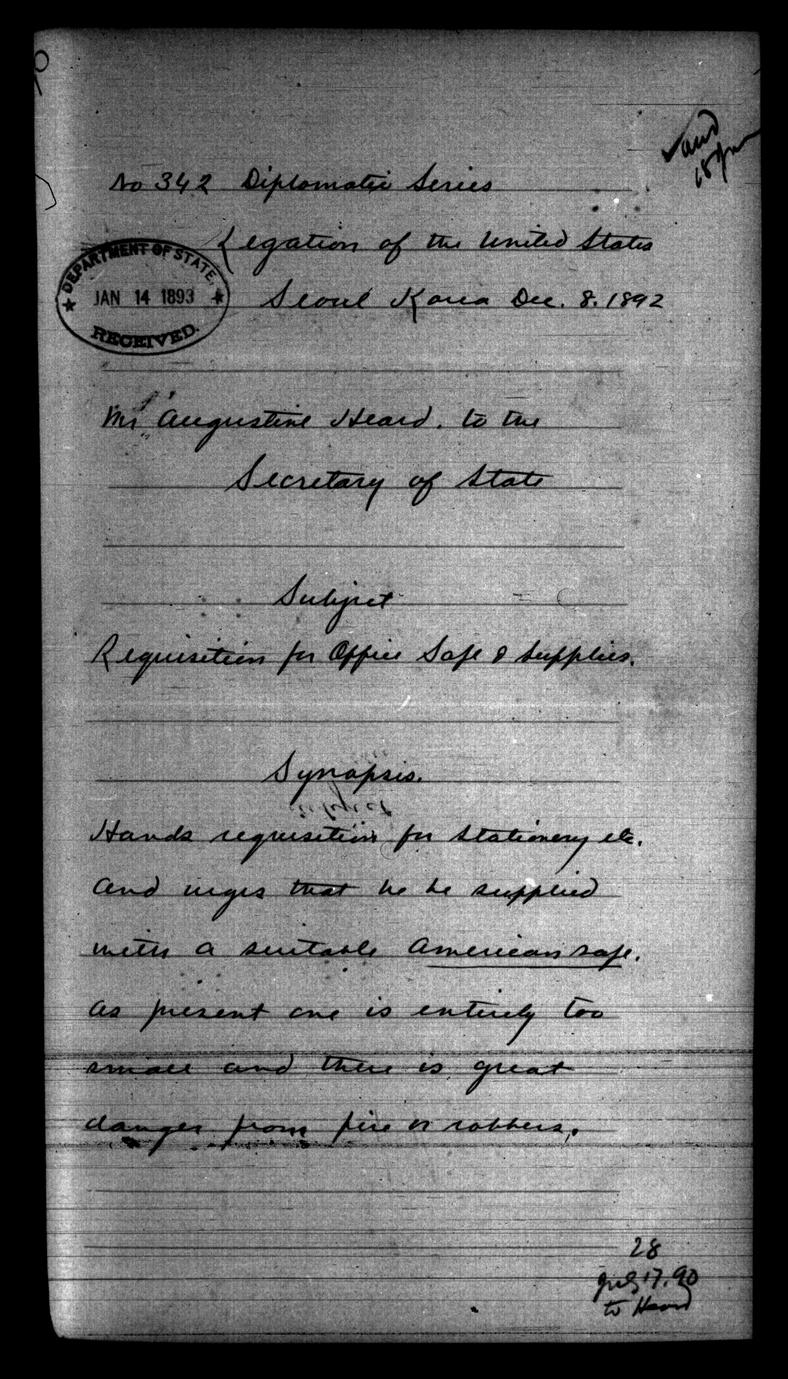 No 342 Diplomatic Series
Legation of the United States
DEPARTMENT OF STATE.
JAN 14 1893
RECEIVED.
Seoul Korea Dec. 8. 1892
Mr Augustine Heard. to the
Secretary of State
Subject
Requisition for Office Safe & Supplies.
Synopsis.
Hands requisition for stationery etc.
and urges that he be supplied
with a suitable American safe.
as present one is entirely too
small and there is great
danger from fire or robbers.
28
July 17. 90
to Heard